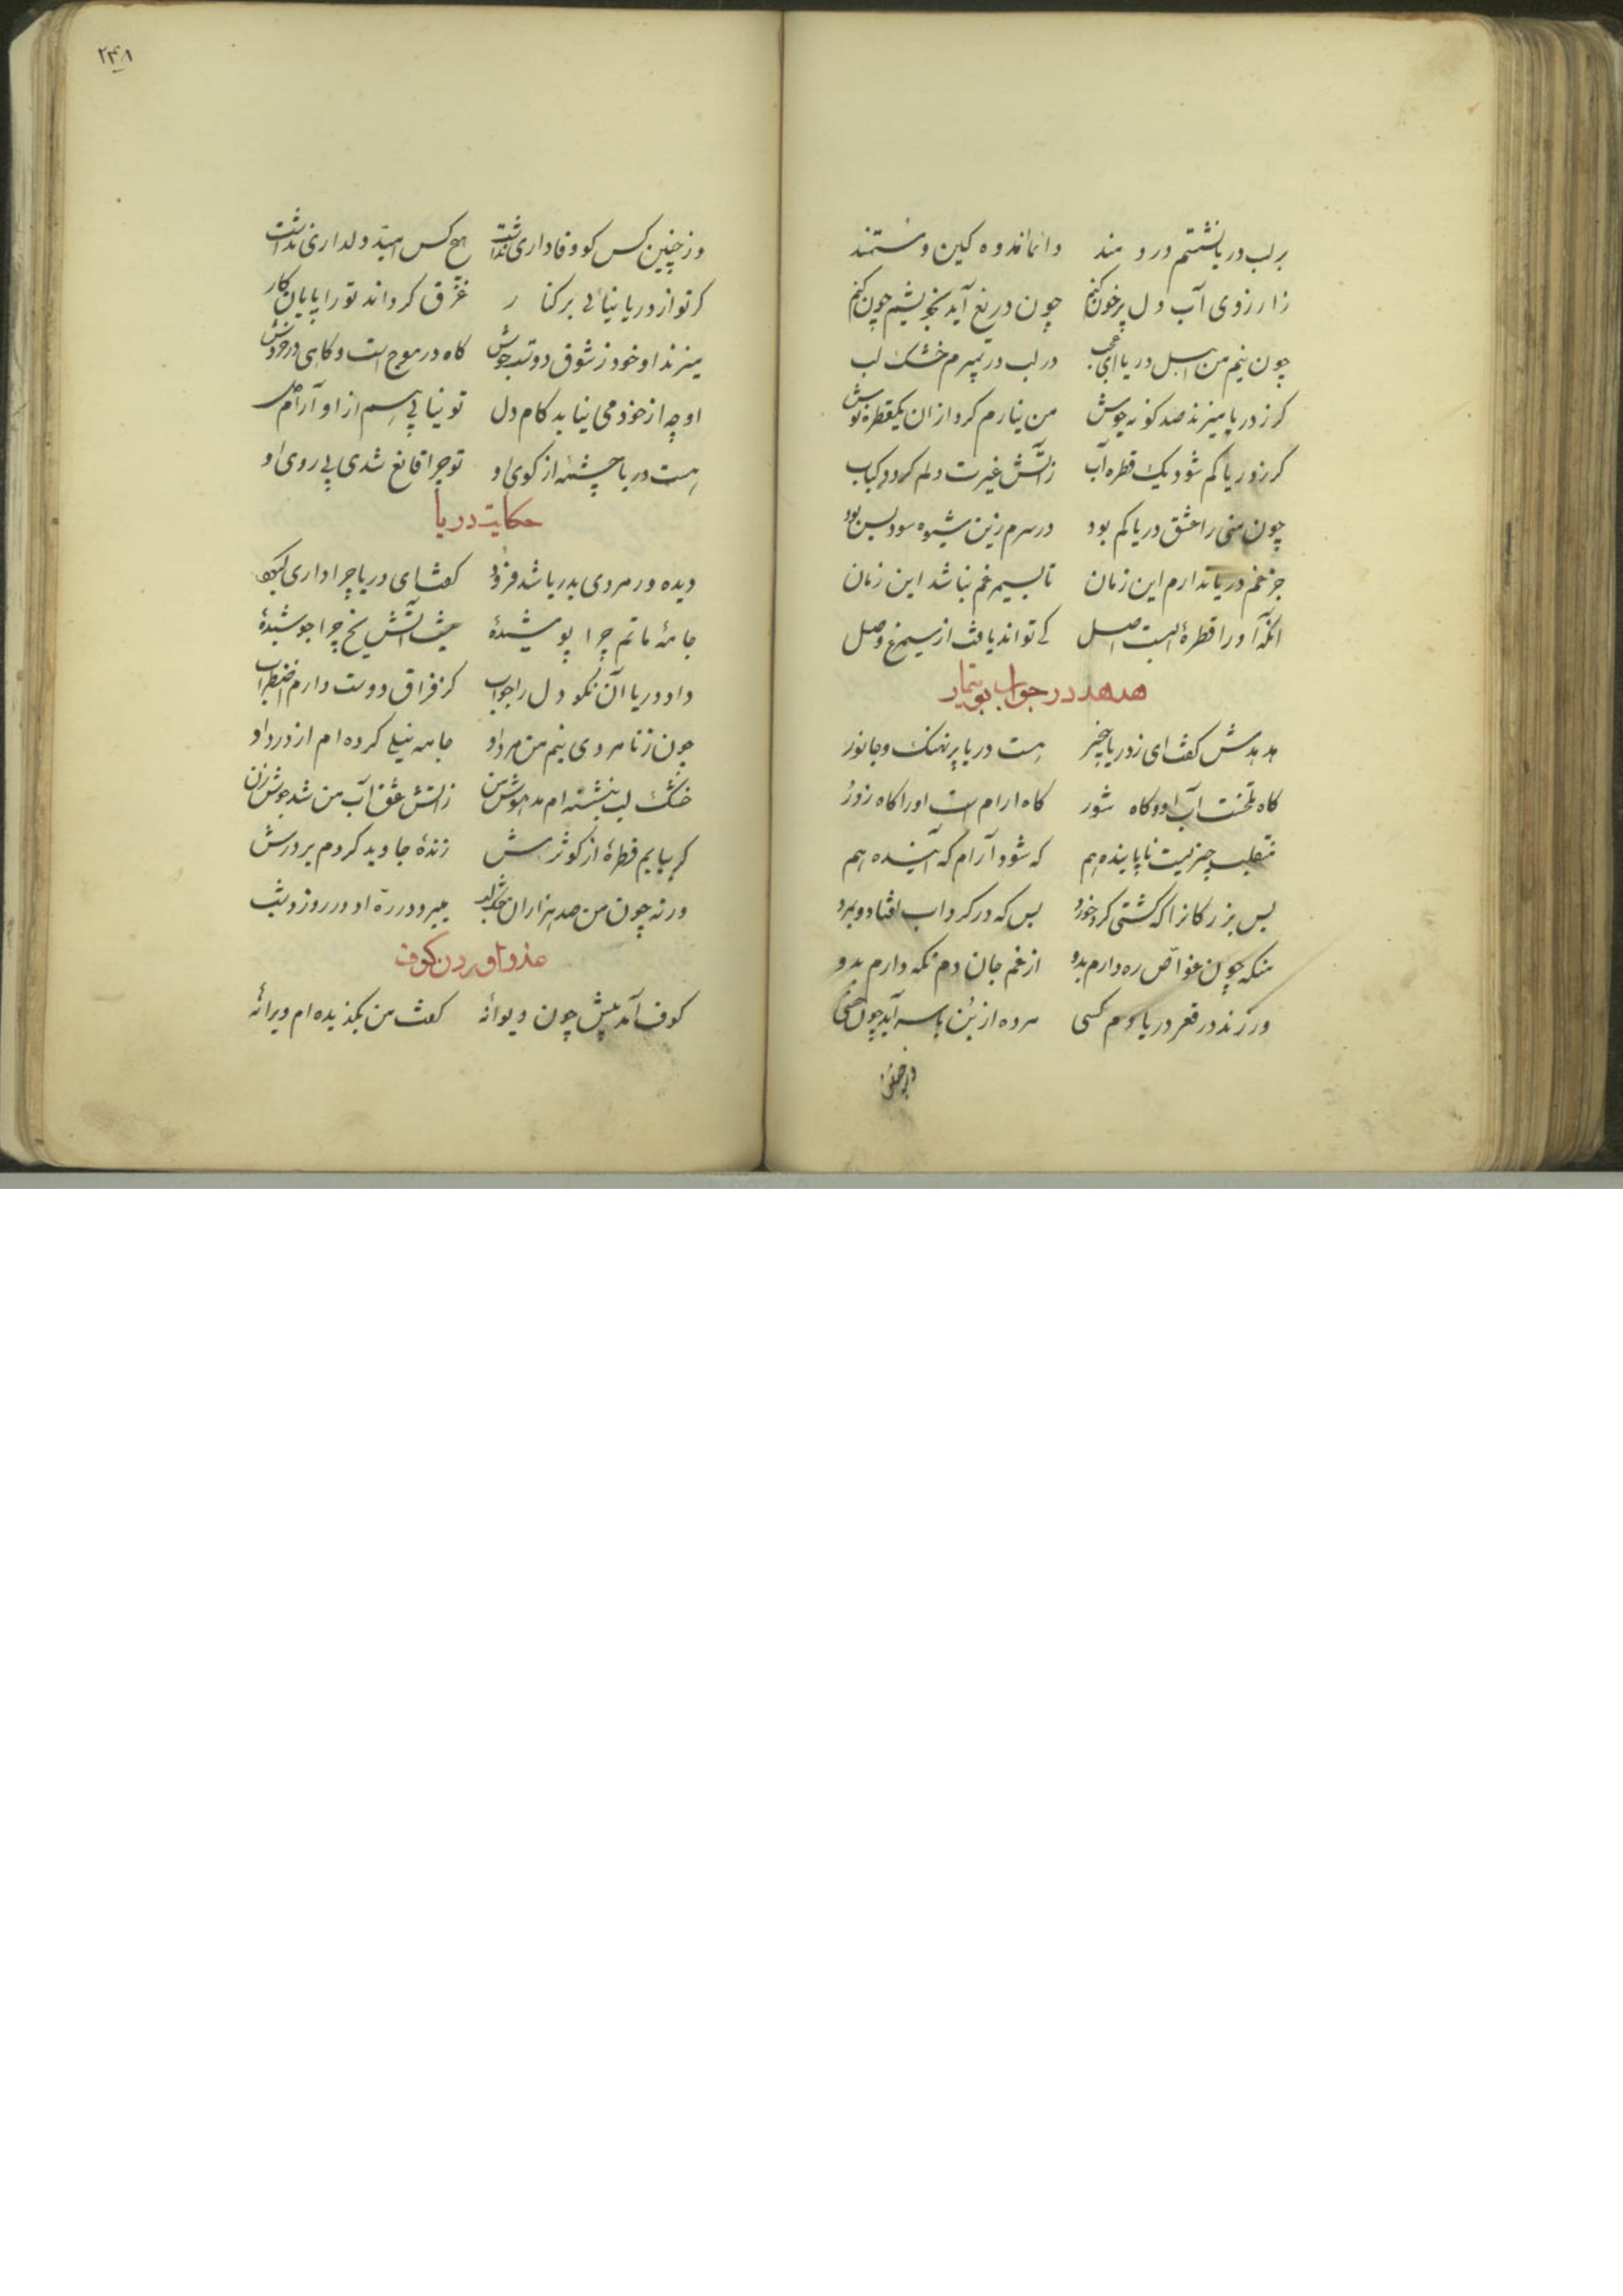 بر لب دریا نشتم درد مند دائما اندوه کین و مستمند
زارزوی آب دل پرخون کنم چون دریغ آید بخویشم چون کنم
چون نیم من اهل دریا ای عجب در لب دریا بمیرم خشک لب
کر ز دریا میزند صد کونه جوش من نیارم کرد ازان یکقطره نوش
کر ز دریا کم شود یک قطره آب زآتش غیرت دلم کردد کباب
چون منی را عشق دریا کم بود در سرم زین شیوه سودا بس بود
جز غم دریا ندارم این زمان تا سیمرغم نباشد این زمان
آنکه او را قطرهٔ آبست اصل کے تواند یافت از سیمرغ وصل
هدهد در جواب بوتیمار
هدهدش کفت ای ز دریا بیخبر هست دریا پر نهنک و جانور
کاه تلخست آب او و کاه شور کاه ارام است او را کاه زور
منقلب چیزیست ناپاینده هم که شود آرام که آینده هم
بس بزرکانرا که کشتی کرد خورد بس که در کرداب افتاد و بمرد
هرکه چون غواص ره دارم بدو از غم جان دم نکه دارم بدو
ور زند در قعر دریا دم کسی مرده از بن با سر آید چون خسی
از چنین
۲۴۸
وز چنین کس کو وفاداری نداشت هیچ کس امید دلداری نداشت
کر تو از دریا نیائی بر کنار غرق کرداند تو را پایان کار
میزند او خود ز شوق دوست جوش کاه در موج است و کاهی در خروش
او چو از خود می نیابد کام دل تو نیابی هم از او آرام دل
هست دریا چشمهٔ از کوی او تو چرا قانع شدی بی روی او
حکایت دریا
دیده ور مردی بدریا شد فرود کفت ای دریا چرا داری کبود
جامهٔ ماتم چرا پوشیدهٔ نیست آتش یخ چرا جوشیدهٔ
داد دریا آن نکو دل را جواب کز فراق دوست دارم اضطراب
چون ز نامردی نیم من مرد او جامه نیلی کرده ام از درد او
خشک لب بنشسته ام مدهوش من زاتش عشق آب من شد جوش زن
کر بیابم قطرهٔ از کوثرش زندهٔ جاوید کردم بر درش
ورنه چون من صد هزاران خشک لب میرود در ره او در روز و شب
عذر آوردن کوف
کوف آمد پیش چون دیوانهٔ کفت من بکزیده ام ویرانهٔ